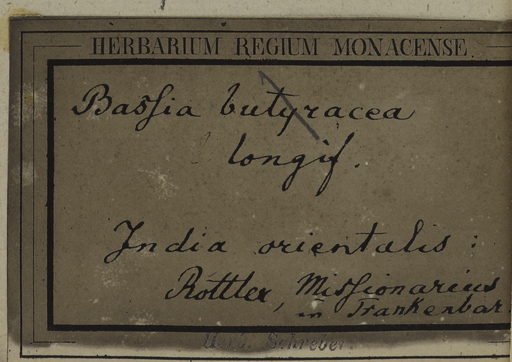 HERBARIUM REGIUM MONACENSE.
Baſsia butyracea
longif.
India orientalis:
Rottler, Miſsionarius
in Trankenbar.
Herb. Schreber.